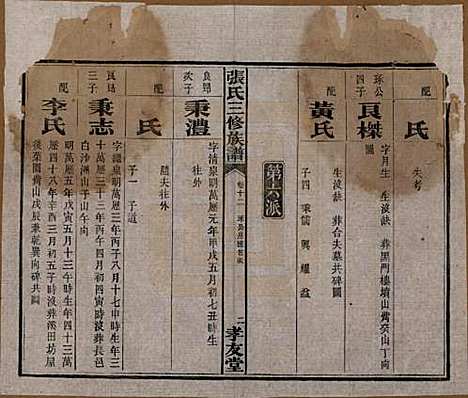 氏
失考
琢公四子
良榤
字月生
生沒缺 葬黑門樓墳山嘴癸山丁向
圖
配
黃氏
生沒缺 葬合夫墓共碑圖
子四 秉儒 興 耀 益
第十六派
張氏三修族譜
卷十一
二
孝友堂
良昂次子
秉澧
字清泉明萬歷元年甲戌五月初七丑時生
往外
配
氏
隨夫往外
子一 子道
良昂三子
秉志
字繼泉明萬歷三年丙子八月十七申時生年三
十三歲明萬歷三十三年四月初四寅時沒葬長邑
白沙洲山子山午向
配
李氏
明萬歷五年戊寅五月十三日時生年四十三
歲明萬歷四十八年四月初三五子時沒葬濱田坊屋
後菜園背山戌辰兼乾巽向碑共圖